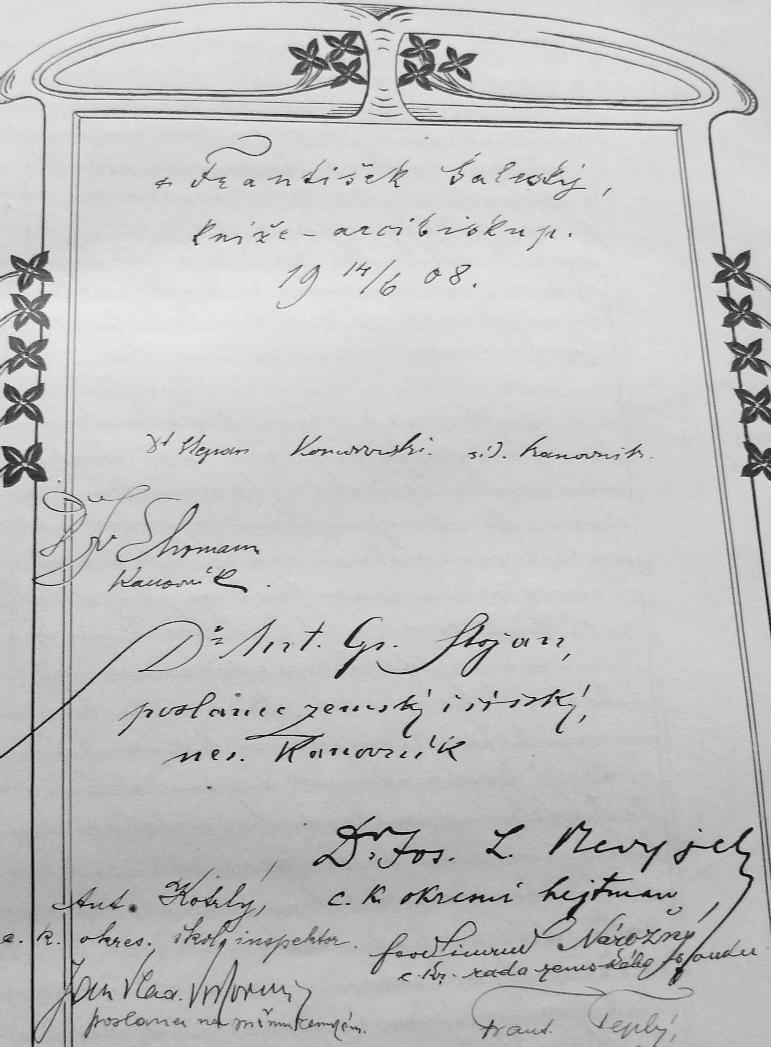 + František Saleský,
kníže-arcibiskup.
19 14/6 08.
Dr Komorowski. s.J. kanovník.
Dr Ehrmann
Kanovník.
Dr Ant. Cyr. Stojan,
poslanec zemský i říšský,
nes. Kanovník
Dr. Jos. L.
Ant. Kotrlý, c. k. okresní hejtman,
c. k. okres. škol. inspektor.
Ferdinand Nárožný
c. kr. rada zemského soudu
Jan Vlad.
poslanec na
Frant. Teplý,